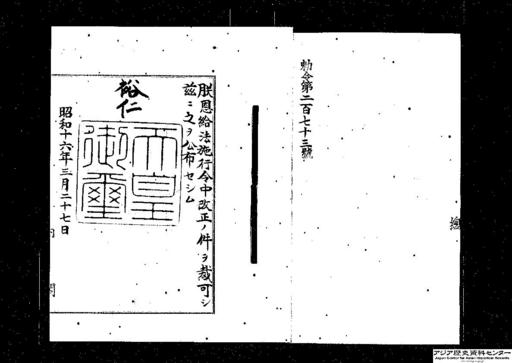 勅令第二百七十三號
朕恩給法施行令中改正ノ件ヲ裁可シ
茲ニ之ヲ公布セシム
裕仁
天皇
御璽
昭和十六年三月二十七日
内閣
アジア歴史資料センター
Japan Center for Asian Historical Records